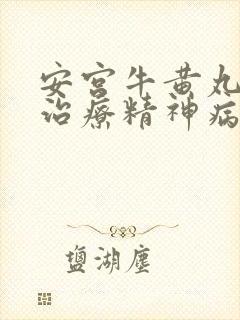 安宫牛黄丸
治療精神病
盐湖塵